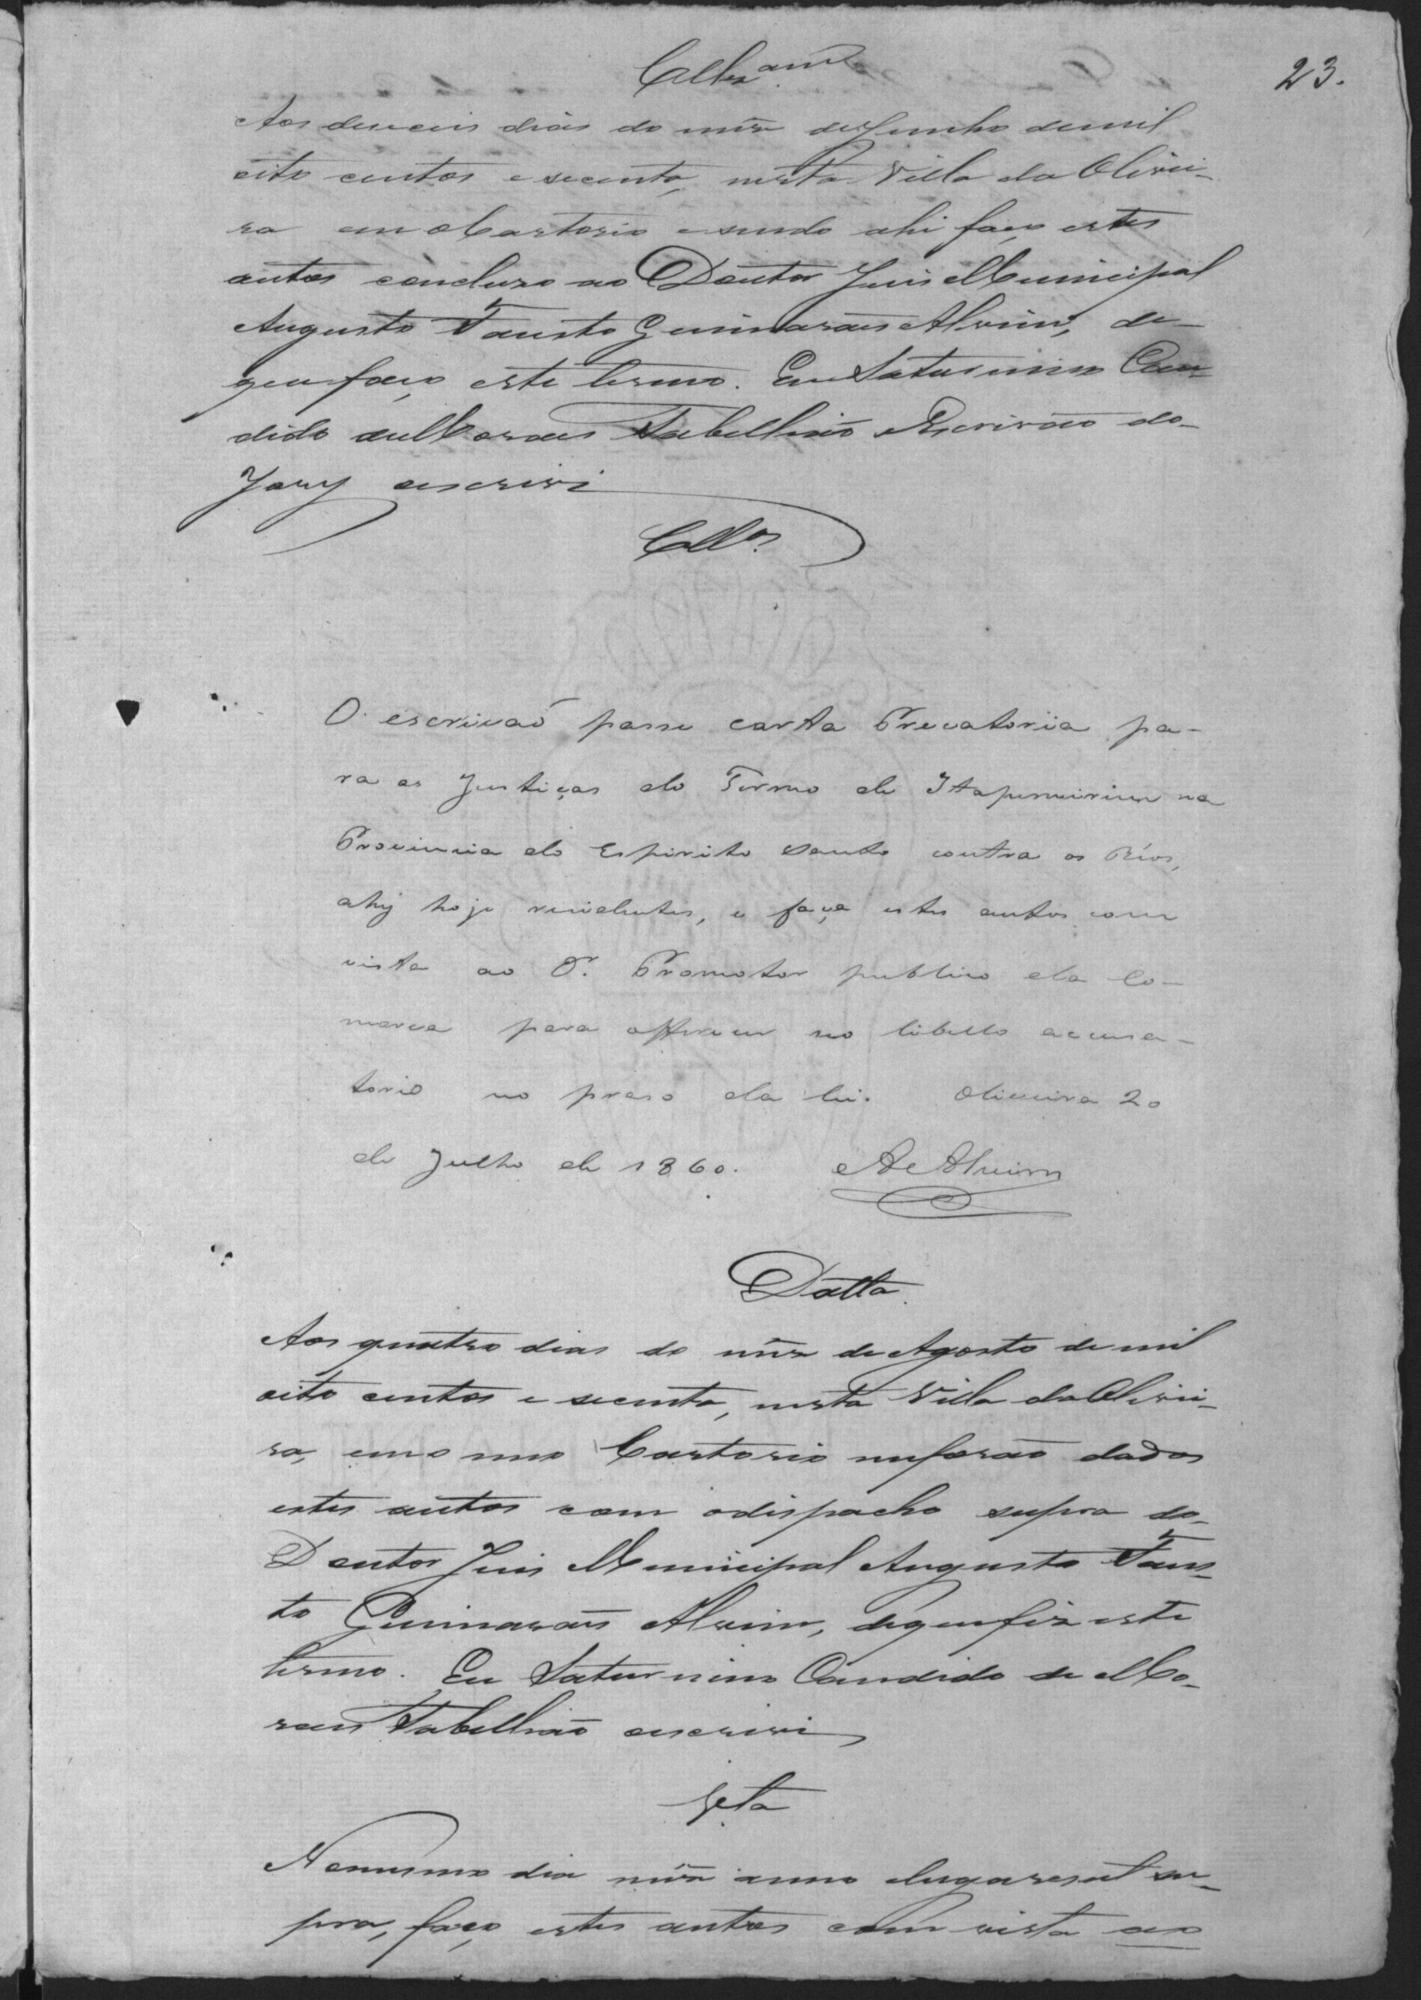 23.
Aos deseceis dias do mez de Junho de mil
oito centos e secenta, nesta Villa da Olivei-
ra em o Cartorio e sendo ahi faço estes
autos concluzo ao Doutor Juis Municipal
Augusto Fausto Guimaraes Alvim, de
que faço este termo. Eu Saturnino Can-
dido de Moraes Tabellião Escrivão do
Jury escrivi
Cllos
O escrivaõ passe carta Precatoria pa-
ra as Justiças do Termo de Itapemirim na
Provincia do Espirito Santo contra os Réos,
ahy hoje residentes, e faça estes autos com
vista ao Dr. Promotor publico da Co-
marca para offerecer no libello accusa-
torio no praso da lei. Oliveira 20
de Julho de 1860. A Alvim
Datta
Aos quatro dias do mez de Agosto de mil
oito centos e secenta, nesta Villa da Olivei-
ra, em o meo Cartorio me forão dados
estes autos com o dispacho supra do
Doutor Juis Municipal Augusto Faus-
to Guimaraes Alvim, de que fiz este
termo. Eu Saturnino Candido de Mo-
raes Tabellião escrivi
Vta
No mesmo dia mez anno e lugar retro su-
pra, faço estes autos com vista ao